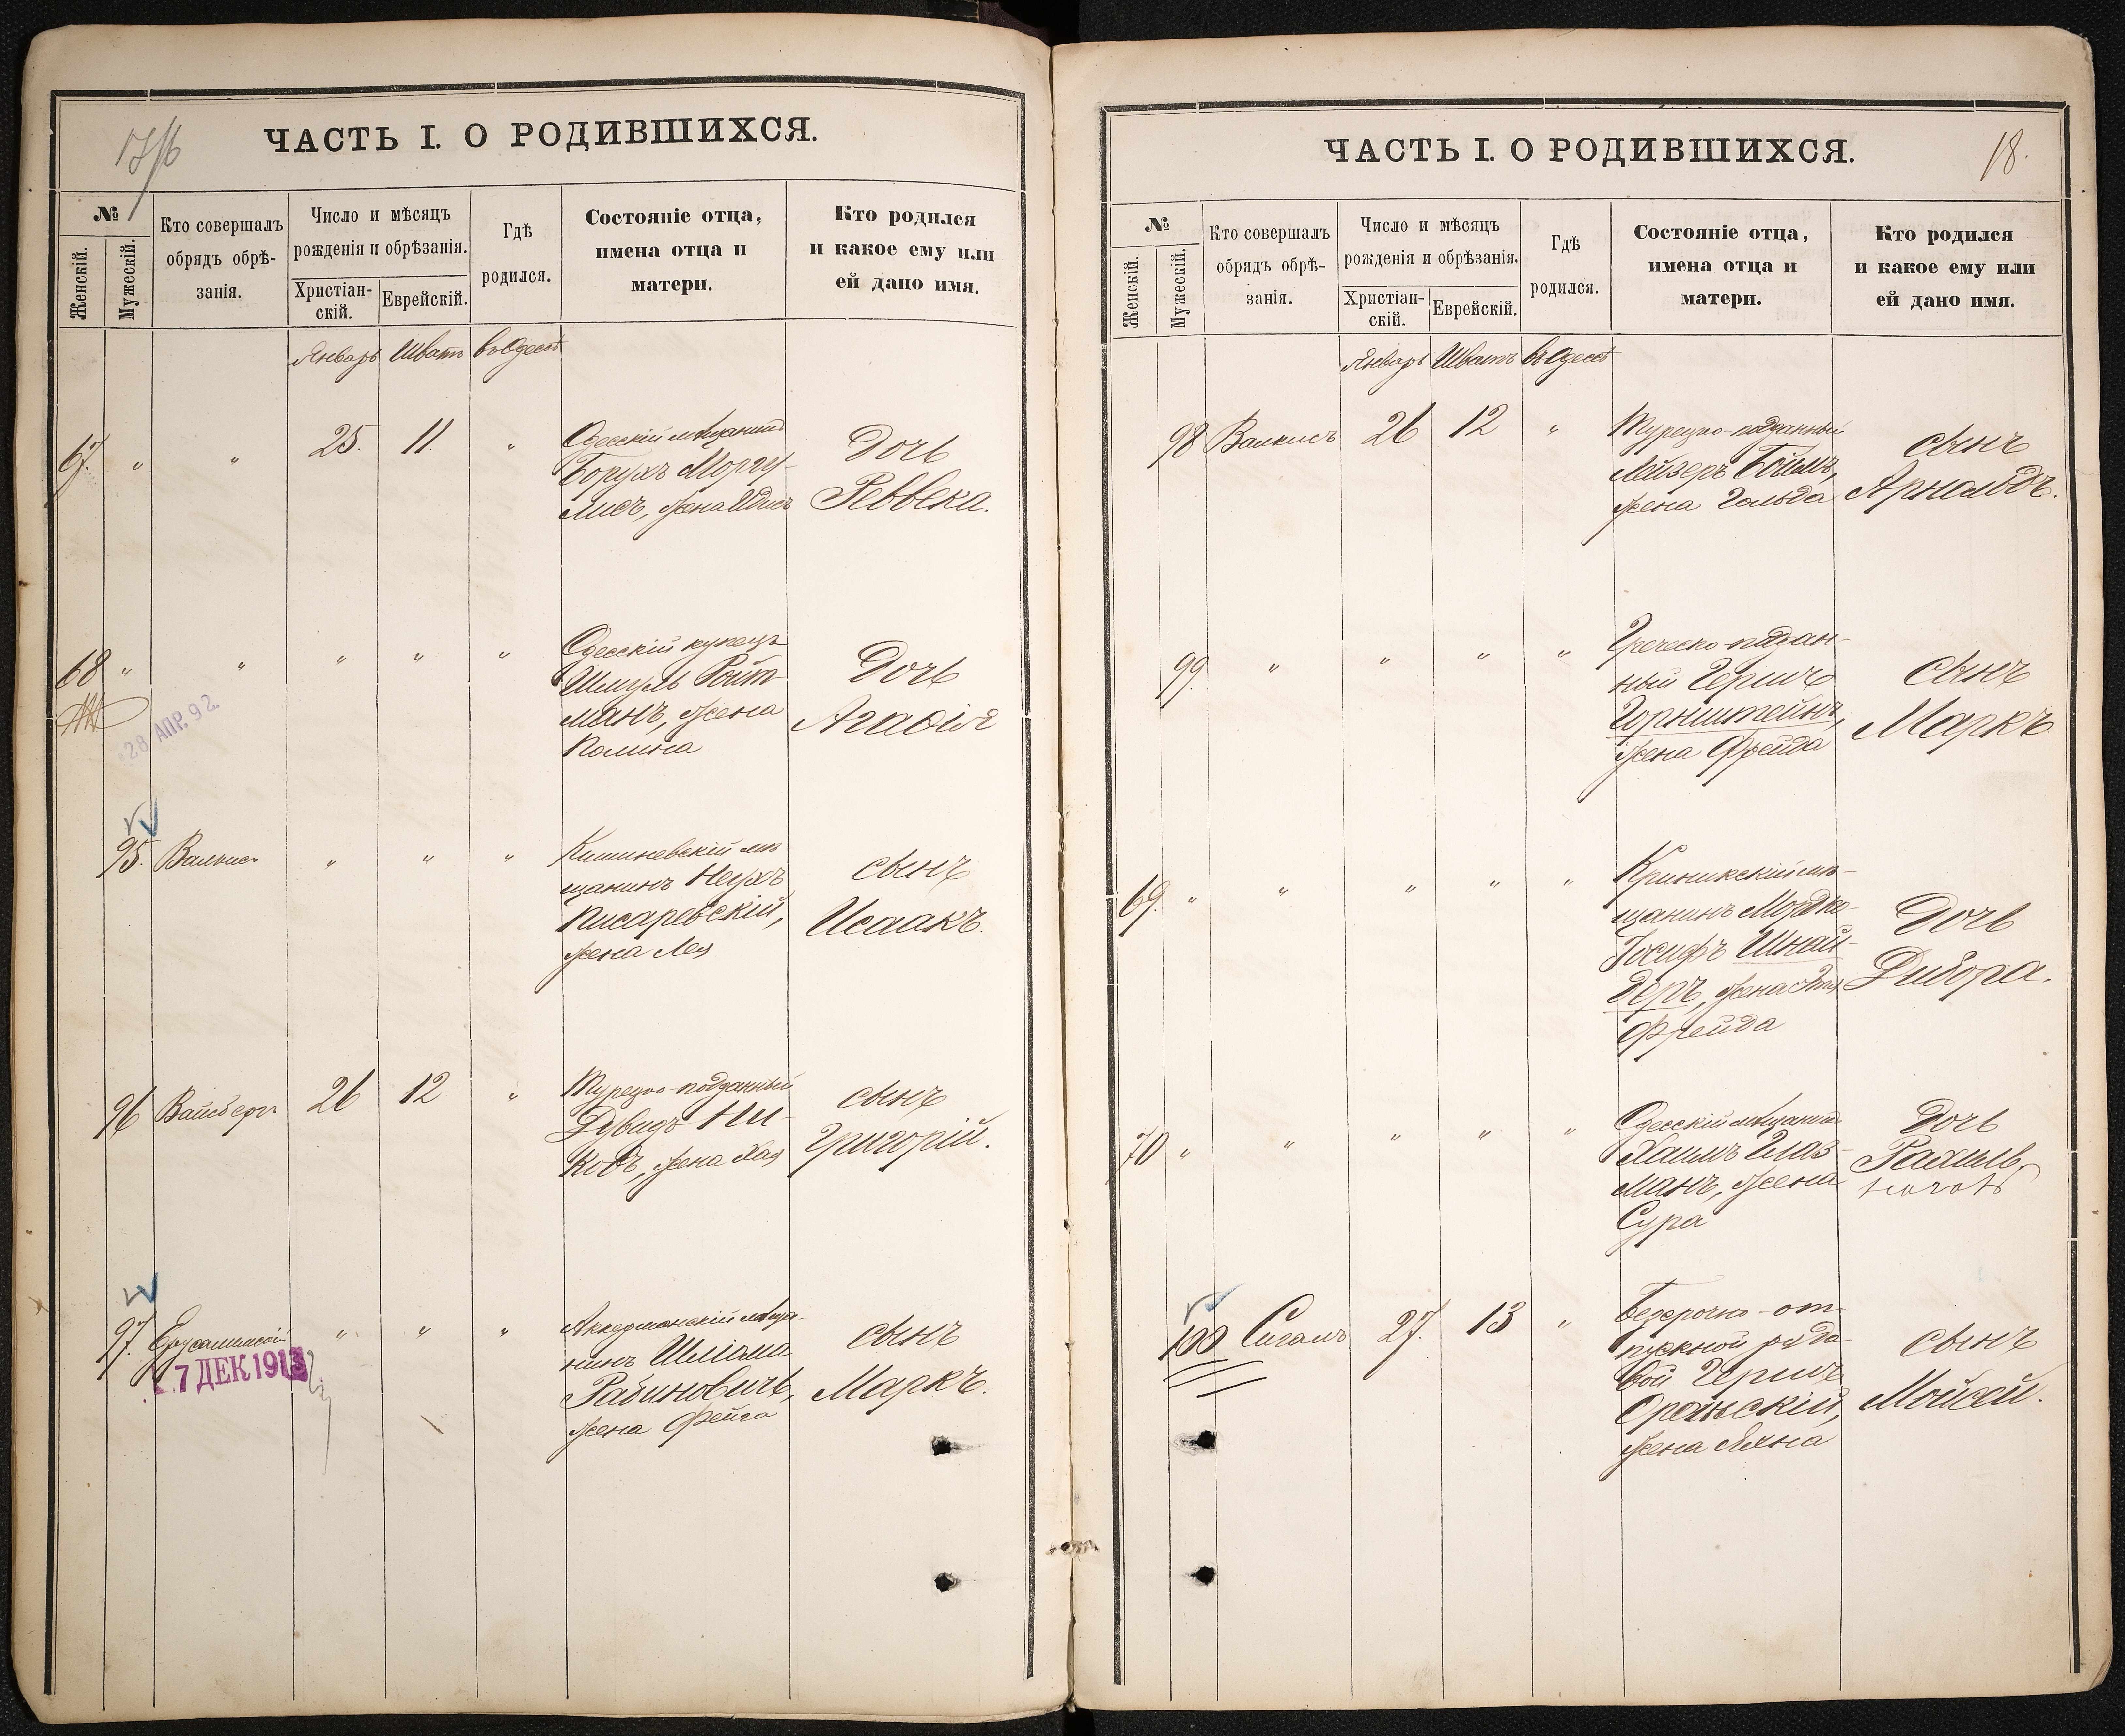 ЧАСТЬ I. О РОДИВШИХСЯ.
№
Женскій.
Мужескій.
Кто совершалъ
обрядъ обрѣ-
занія.
Число и мѣсяцъ
рожденія и обрѣзанія.
Христіан-
скій.
Еврейскій.
Гдѣ
родился.
Состояніе отца,
имена отца и
матери.
Кто родился
и какое ему или
ей дано имя.
Январь Шватъ въ Одессѣ
67. " " 25. 11. "
Одесскій мѣщанинъ
Борухъ Моргу-
лисъ, жена
Дочь
Реввека.
68 " " " " "
Одесскій купецъ
Шмуль Ройт-
манъ, жена
Полина
Дочь
Агафія
28 АПР. 92.
95. " " "
Кишиневскій мѣ-
щанинъ Нухъ
Писаревскій,
жена Лея
сынъ
Исаакъ.
96 Вайсбергъ 26 12 "
Турецко-подданный
Дувидъ Ни-
ковъ, жена Хая
сынъ
Григорій.
97. Ерусалимскій " " "
7 ДЕК 1913
Аккерманскій мѣща-
нинъ Шліома
Рабиновичъ,
жена Фейга
сынъ
Маркъ.
ЧАСТЬ I. О РОДИВШИХСЯ.
18.
№
Женскій.
Мужескій.
Кто совершалъ
обрядъ обрѣ-
занія.
Число и мѣсяцъ
рожденія и обрѣзанія.
Христіан-
скій.
Еврейскій.
Гдѣ
родился.
Состояніе отца,
имена отца и
матери.
Кто родился
и какое ему или
ей дано имя.
Январь Шватъ въ Одессѣ
98 26 12 "
Турецко-подданный
Лейзеръ Боймъ,
жена Гольда
сынъ
Арнольдъ.
99. " " " "
Греческо-поддан-
ный Гершъ
Горнштейнъ,
жена Фрейда
сынъ
Маркъ
69. " " " " "
Криникскій мѣ-
щанинъ Мордко-
Іосифъ Шнай-
деръ, жена
Фрейда
Дочь
Дибора.
70 " " " " "
Одесскій мѣщанинъ
Хаимъ Глаз-
манъ, жена
Сура
Дочь
Рахиль
100 Сигалъ 27. 13 "
Безсрочно-от-
пускной рядо-
вой Гершъ
Оранскій,
жена
сынъ
Мойсей.